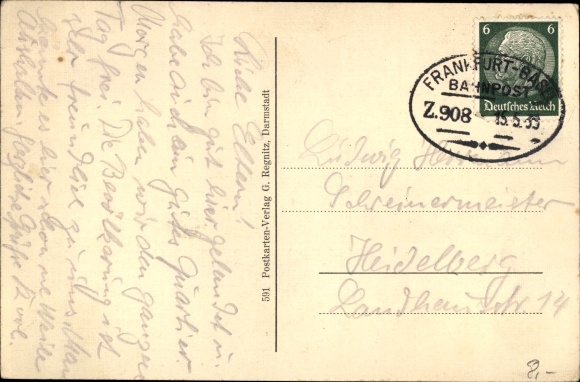 Liebe Eltern!
Ich bin gut hier gelandet u.
habe auch ein gutes Quartier
Morgen haben wir den ganzen
Tag frei. Die Bevölkerung ist
sehr freundlich zu uns. Man
es hier
aushalten. Herzliche Grüße
591 Postkarten-Verlag G. Regnitz, Darmstadt
6 6
Deutsches Reich
FRANKFURT-BASEL
BAHNPOST
Z.908 15.5.39
Ludwig Herrmann
Schreinermeister
Heidelberg
Landhausstr. 14
8,-